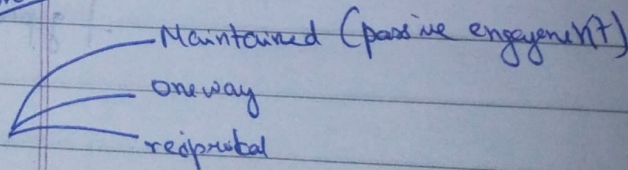 Maintained (passive engagement)
oneway
reciprocal